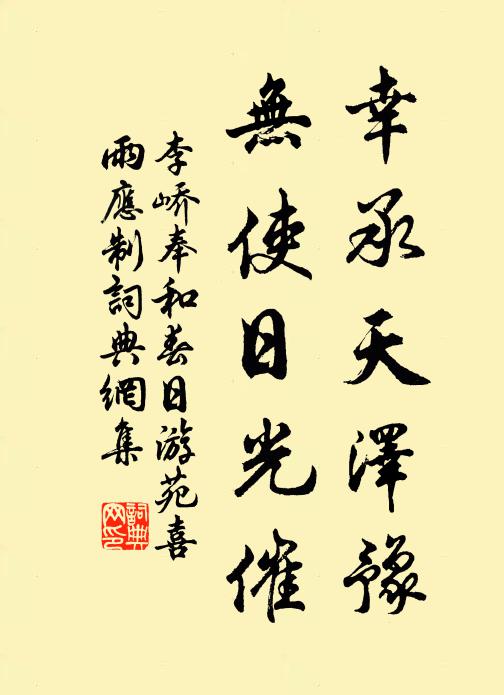 幸承天澤豫
無使日光催
李嶠奉和春日游苑喜
雨應制詞典網集
詞典
网印